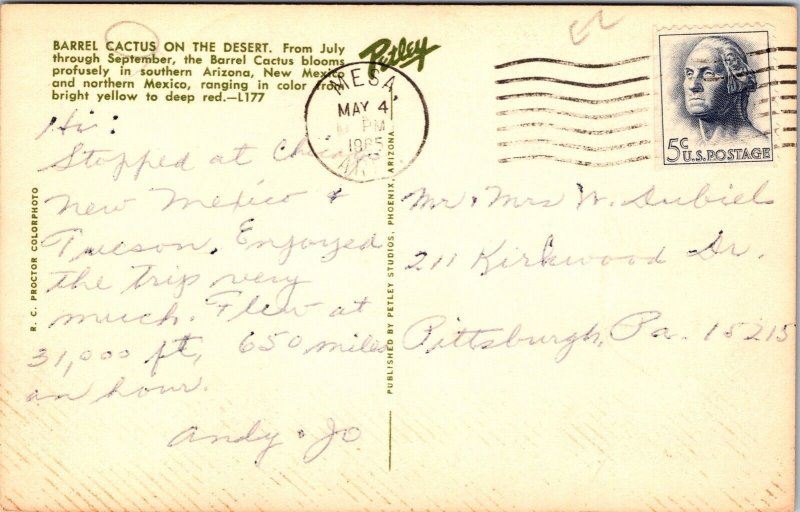 BARREL CACTUS ON THE DESERT. From July
through September, the Barrel Cactus blooms
profusely in southern Arizona, New Mexico
and northern Mexico, ranging in color from
bright yellow to deep red.—L177
Petley
MESA,
MAY 4
PM
1965
5¢
U.S. POSTAGE
Hi:
Stopped at Chicago
New Mexico &
Tucson. Enjoyed
the trip very
much. Flew at
31,000 ft, 650 miles
an hour.
Andy & Jo
R. C. PROCTOR COLORPHOTO
PUBLISHED BY PETLEY STUDIOS, PHOENIX, ARIZONA
Mr. Mrs W. Dubiel
211 Kirkwood Dr.
Pittsburgh, Pa. 15215